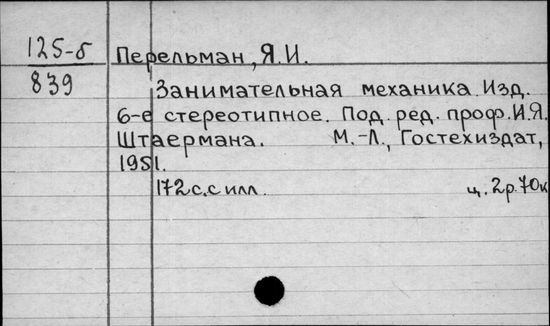 125-б
839
Перельман, Я.И.
Занимательная механика. Изд.
6-е стереотипное. Под. ред. проф. И.Я.
Штаермана. М.-Л., Гостехиздат,
1951.
172 с. с илл. ц. 2р. 70к